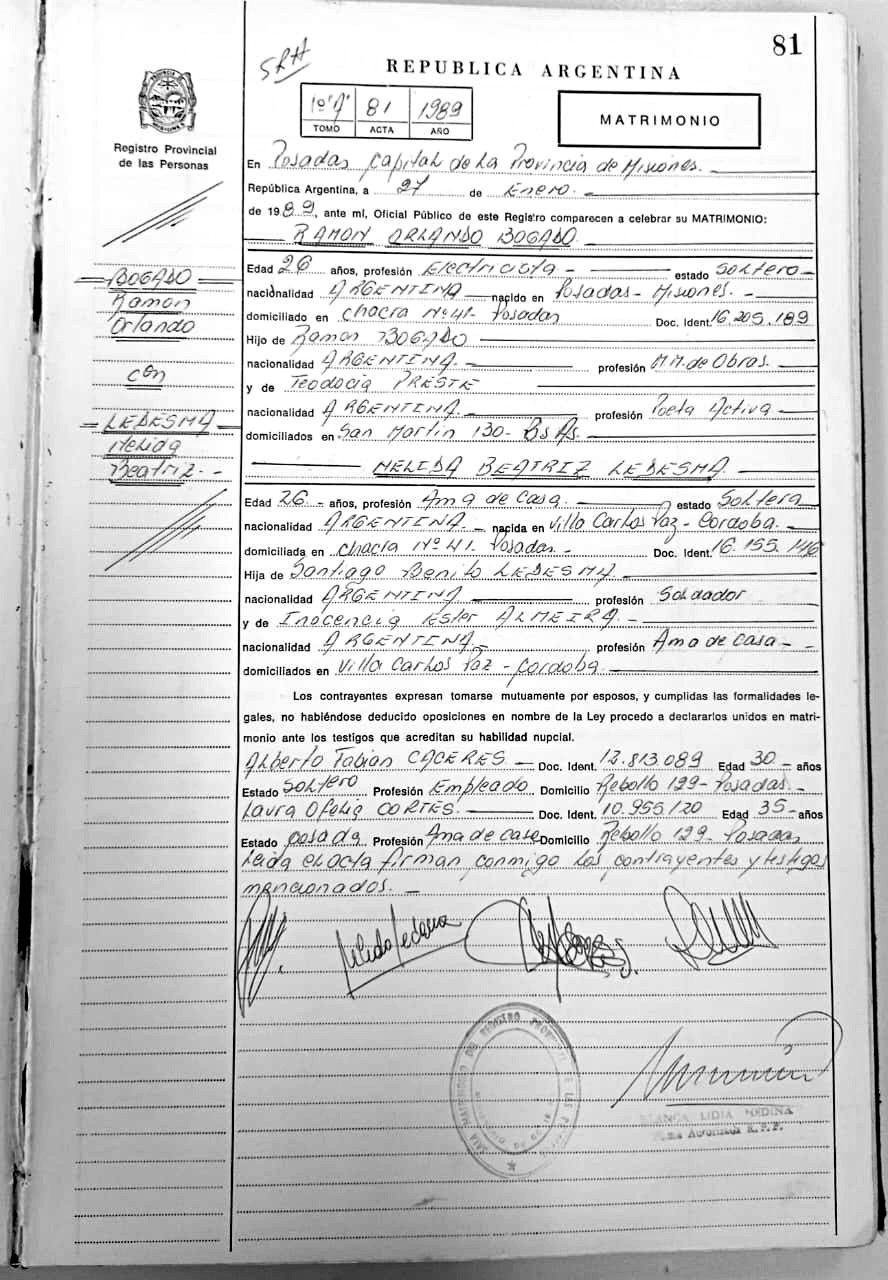 81
SRH
REPUBLICA ARGENTINA
1º "A" 81 1989
TOMO ACTA AÑO
MATRIMONIO
Registro Provincial
de las Personas
En Posadas Capital de la Provincia de Misiones.
República Argentina, a 27 de Enero.
de 1989, ante mí, Oficial Público de este Registro comparecen a celebrar su MATRIMONIO:
RAMON ORLANDO BOGADO.
BOGADO
Ramon
Orlando
con
LEDESMA
Melida
Beatriz. -
Edad 26 años, profesión Electricista - estado Soltero -
nacionalidad ARGENTINA nacido en Posadas - Misiones.
domiciliado en chacra Nº 41- Posadas Doc. Ident. 16.205.189
Hijo de Ramon BOGADO
nacionalidad ARGENTINA. profesión M.M. de Obras.
y de Teodocia PRESTE
nacionalidad ARGENTINA. profesión Activa
domiciliados en San Martin 130- Bs As.
MELIDA BEATRIZ LEDESMA.
Edad 26 - años, profesión Ama de Casa. estado Soltera
nacionalidad ARGENTINA - nacida en Villa Carlos Paz - Cordoba. -
domiciliada en chacra Nº 41. Posadas. - Doc. Ident. 16.155.146
Hija de Santiago Benito LEDESMA.
nacionalidad ARGENTINA profesión Soldador
y de Inocencia Ester ALMEIRA. -
nacionalidad ARGENTINA. profesión Ama de casa -
domiciliados en Villa Carlos Paz - Cordoba.
Los contrayentes expresan tomarse mutuamente por esposos, y cumplidas las formalidades le-
gales, no habiéndose deducido oposiciones en nombre de la Ley procedo a declararlos unidos en matri-
monio ante los testigos que acreditan su habilidad nupcial.
Alberto Fabian CACERES. - Doc. Ident. 12.813.089 Edad 30 - años
Estado Soltero Profesión Empleado Domicilio Rebollo 129 - Posadas. -
Laura Ofelia CORTES. Doc. Ident. 10.955.120 Edad 35 - años
Estado casada Profesión Ama de casa Domicilio Rebollo 129 - Posadas
Leida el acta firman conmigo los contrayentes y testigos
mencionados. -
BLANCA LIDIA MEDINA